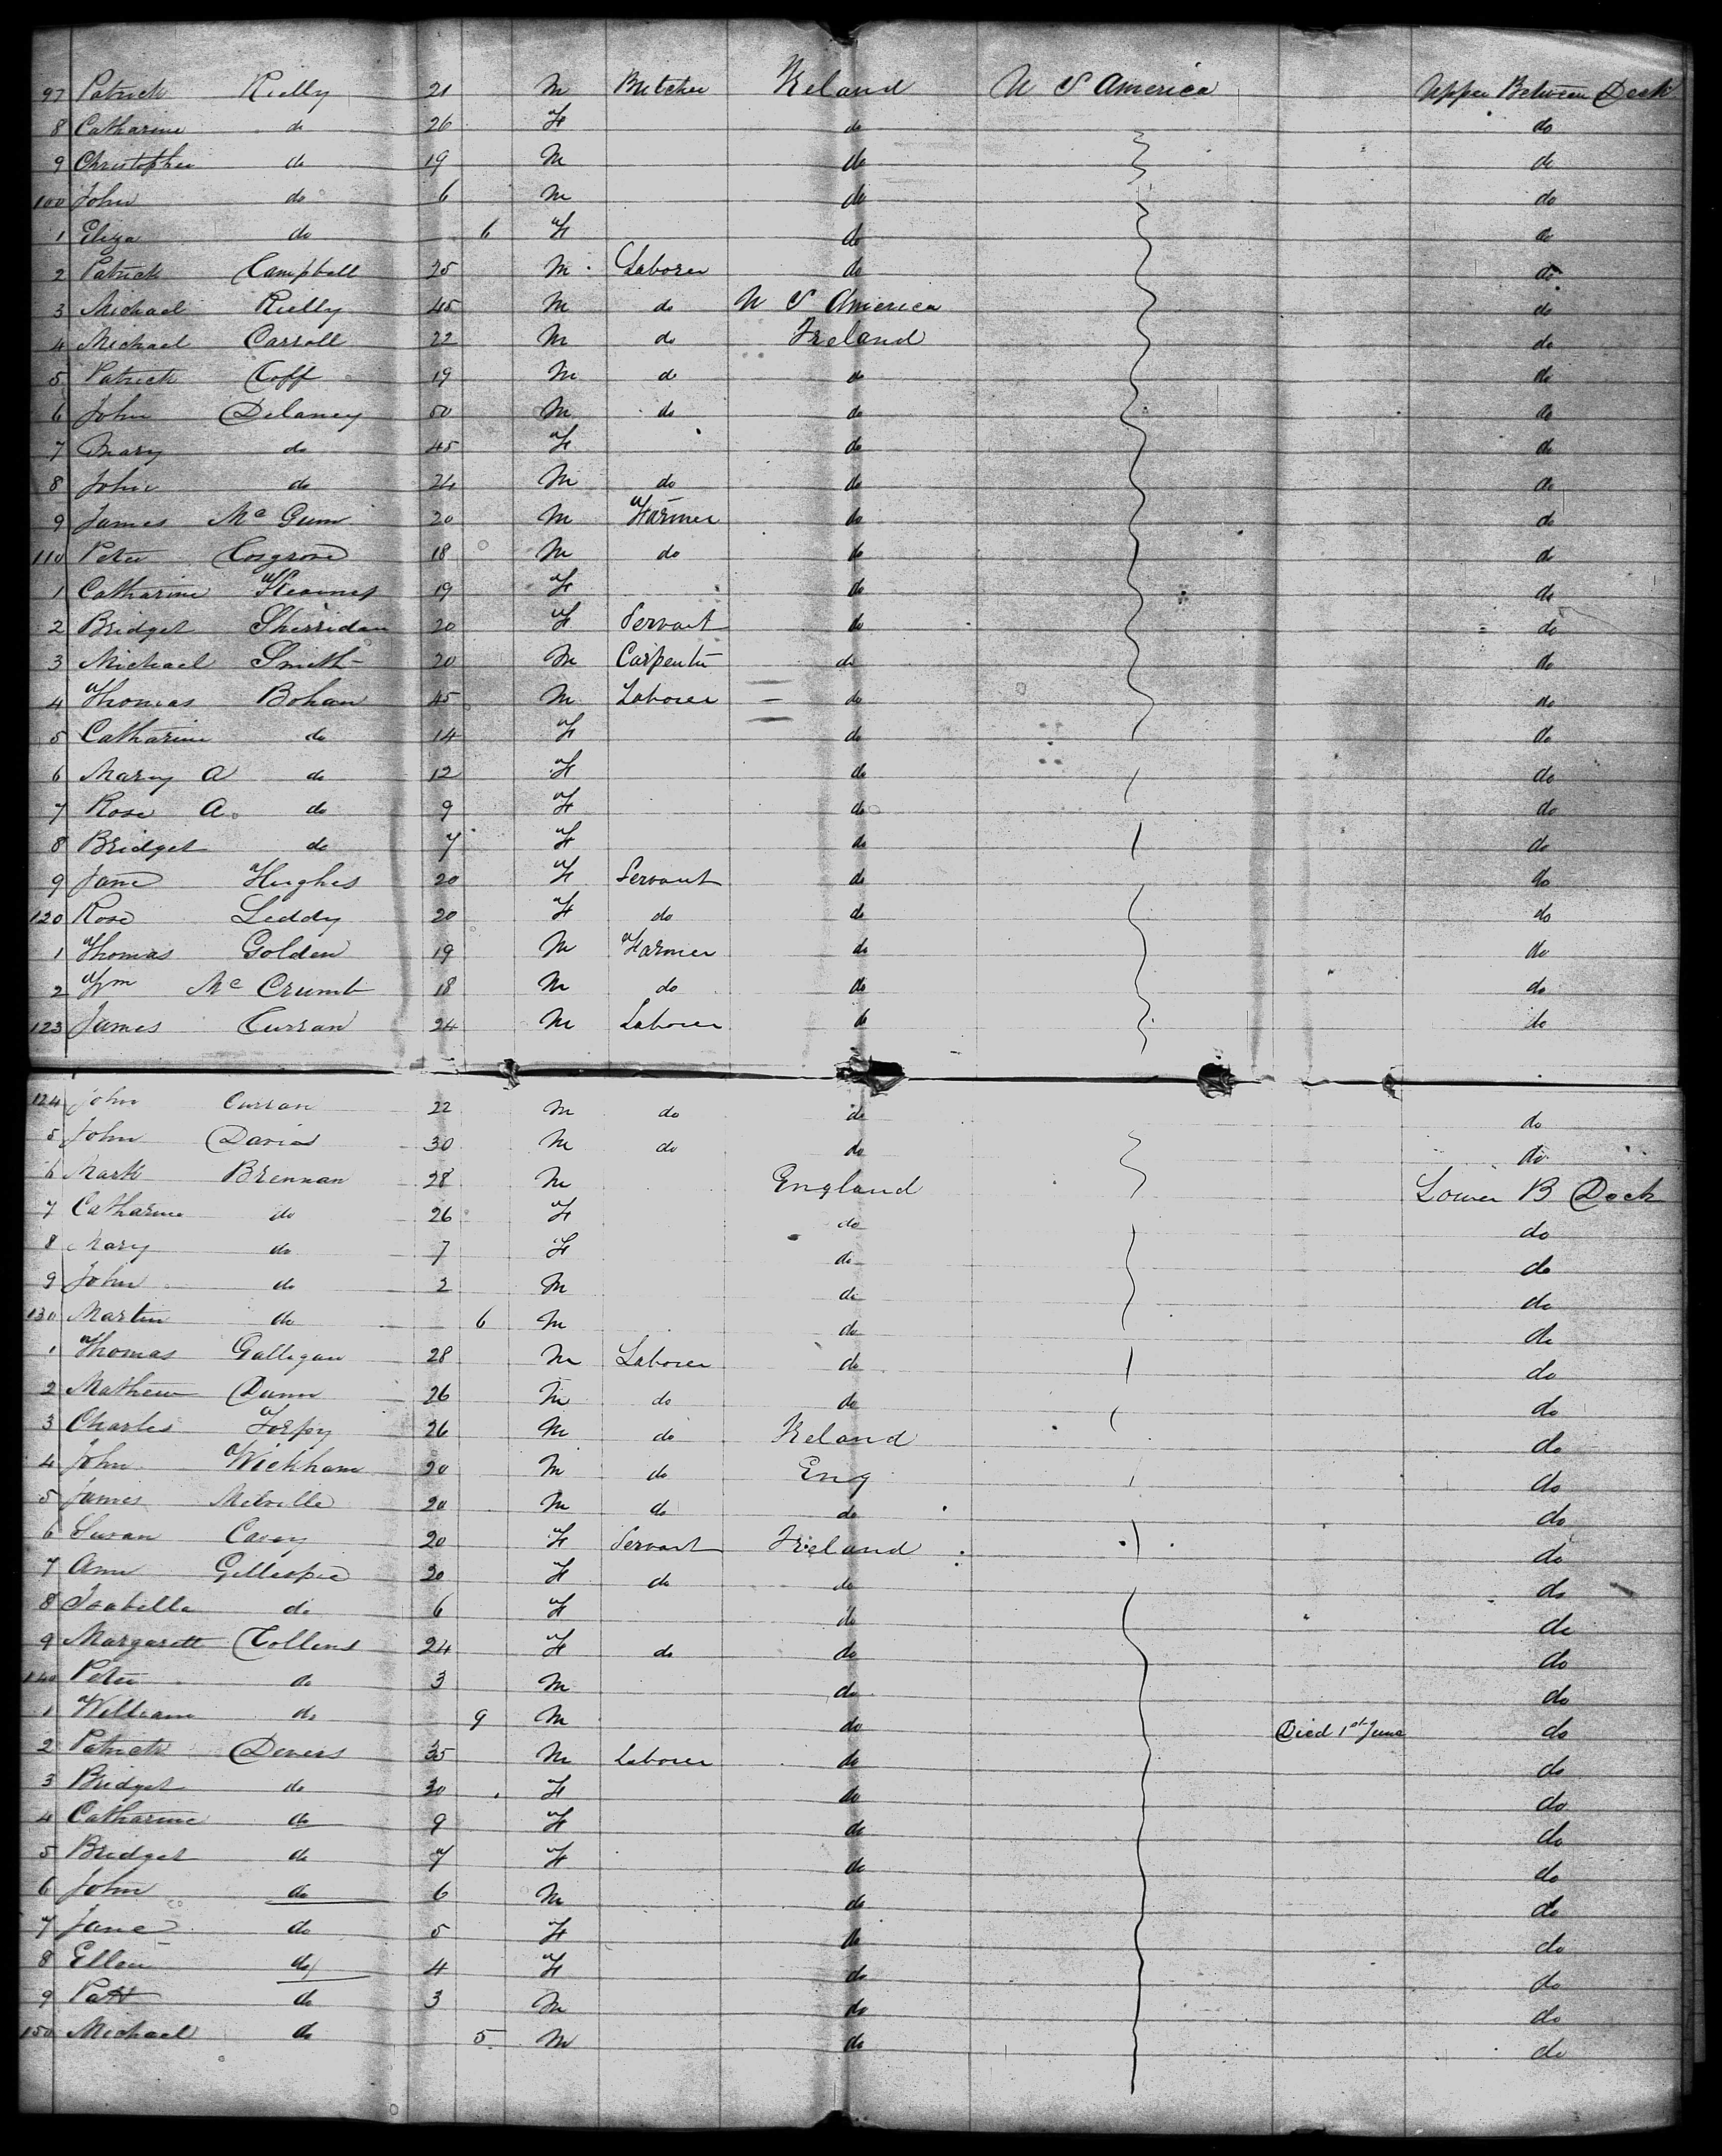 97 Patrick Rielly 21 M Butcher Ireland U S America Upper Between Deck
8 Catharine do 26 F do do
9 Christopher do 19 M do do
100 John do 6 M do do
1 Eliza do 6 F do do
2 Patrick Campbell 25 M Laborer do do
3 Michael Rielly 45 M do U S America do
4 Michael Carroll 22 M do Ireland do
5 Patrick Coff 19 M do do do
6 John Delaney 50 M do do do
7 Mary do 45 F do do
8 John do 24 M do do do
9 James Mc Gum 20 M Farmer do do
110 Peter Cosgrove 18 M do do do
1 Catharine Kearnes 19 F do do
2 Bridget Sherridan 20 F Servant do do
3 Michael Smith 20 M Carpenter do do
4 Thomas Bohan 45 M Laborer do do
5 Catharine do 14 F do do
6 Mary A do 12 F do do
7 Rose A. do 9 F do do
8 Bridget do 7 F do do
9 Jane Hughes 20 F Servant do do
120 Rose Leddy 20 F do do do
1 Thomas Golden 19 M Farmer do do
2 Wm Mc Crumb 18 M do do do
123 James Curran 24 M Laborer do do
124 John Curran 22 M do do do
5 John Davis 30 M do do do
6 Mark Brennan 28 M England Lower B Deck
7 Catharine do 26 F do do
8 Mary do 7 F do do
9 John do 2 M do do
130 Martin do 6 M do do
1 Thomas Galligan 28 M Laborer do do
2 Mathew Dunn 26 M do do do
3 Charles Torpy 26 M do Ireland do
4 John Wickham 20 M do Eng do
5 James Melville 20 M do do do
6 Susan Carey 20 F Servant Ireland do
7 Ann Gillespie 20 F do do do
8 Isabella do 6 F do do
9 Margarett Collins 24 F do do do
140 Peter do 3 M do do
1 William do 9 M do Died 1st June do
2 Patrick Devers 35 M Laborer do do
3 Bridget do 30 F do do
4 Catharine do 9 F do do
5 Bridget do 7 F do do
6 John do 6 M do do
7 Jane do 5 F do do
8 Ellen do 4 F do do
9 Patt do 3 M do do
150 Michael do 5 M do do